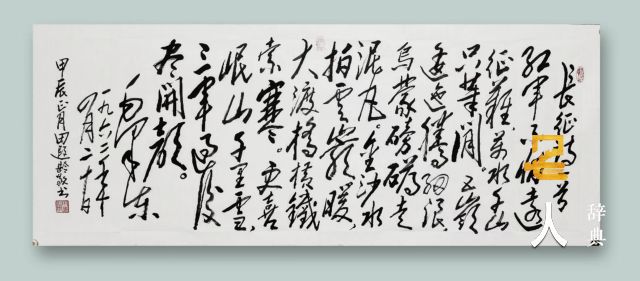 長征詩一首
红军不怕遠
征難萬水千山
只等闲。五嶺
逶迤腾细浪
烏蒙磅礴走
泥丸。金沙水
拍雲崖暖
大渡橋橫鐵
索寒。更喜
岷山千里雪
三軍過後
盡開顏。
毛澤东
一九六二年
四月二十日
甲辰正月田超龄敬书
名人
辞典